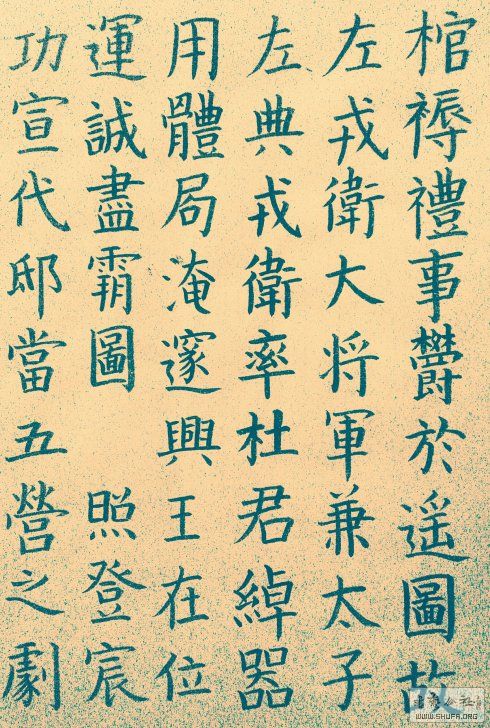 棺褥禮事欝於遥圖故
左戎衛大将軍兼太子
左典戎衛率杜君綽器
用體局淹邃興王在位
運誠盡霸圖 照登宸
功宣代邸當五營之劇
WWW.SHUFA.ORG